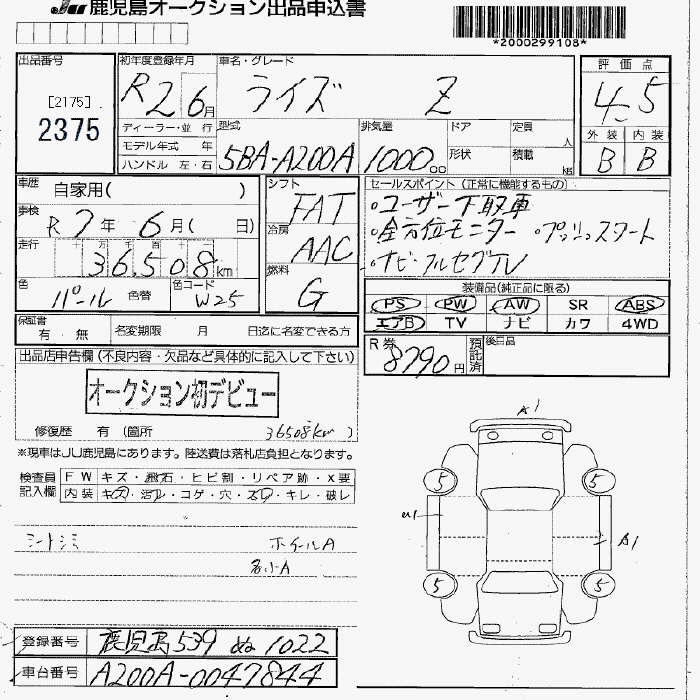 JU 鹿児島オークション出品申込書
*2000299108*
出品番号
[2175]
2375
初年度登録年月
R2 6月
車名・グレード
ライズ Z
評価点
4.5
外装 内装
B B
ディーラー・並行
モデル年式 年
ハンドル 左・右
型式
5BA-A200A
排気量
1000cc
ドア
形状
定員 人
積載 kg
車歴
自家用( )
車検
R7年 6月( 日)
走行
十万千百十
36,508km
色
パール 色替
色コード
W25
シフト
FAT
冷房
AAC
燃料
G
セールスポイント (正常に機能するもの)
・ユーザー下取車
・全方位モニター ・プッシュスタート
・ナビ・フルセグTV
装備品(純正品に限る)
PS PW AW SR ABS
エアB TV ナビ カワ 4WD
保証書
有・無
名変期限 月 日迄に名変できる方
R券
8790円
預託済
後日品
出品店申告欄(不良内容・欠品など具体的に記入して下さい)
オークション初デビュー
修復歴 有 (箇所 36508km )
※現車はJU鹿児島にあります。陸送費は落札店負担となります。
検査員記入欄
FW キズ・飛石・ヒビ割・リペア跡・X要
内装 キズ・汚レ・コゲ・穴・スレ・キレ・破レ
シートシミ ホイールA
各小A
A1
5 5
U1 A1
5 5
登録番号 鹿児島 539 ぬ 1022
車台番号 A200A-0047844